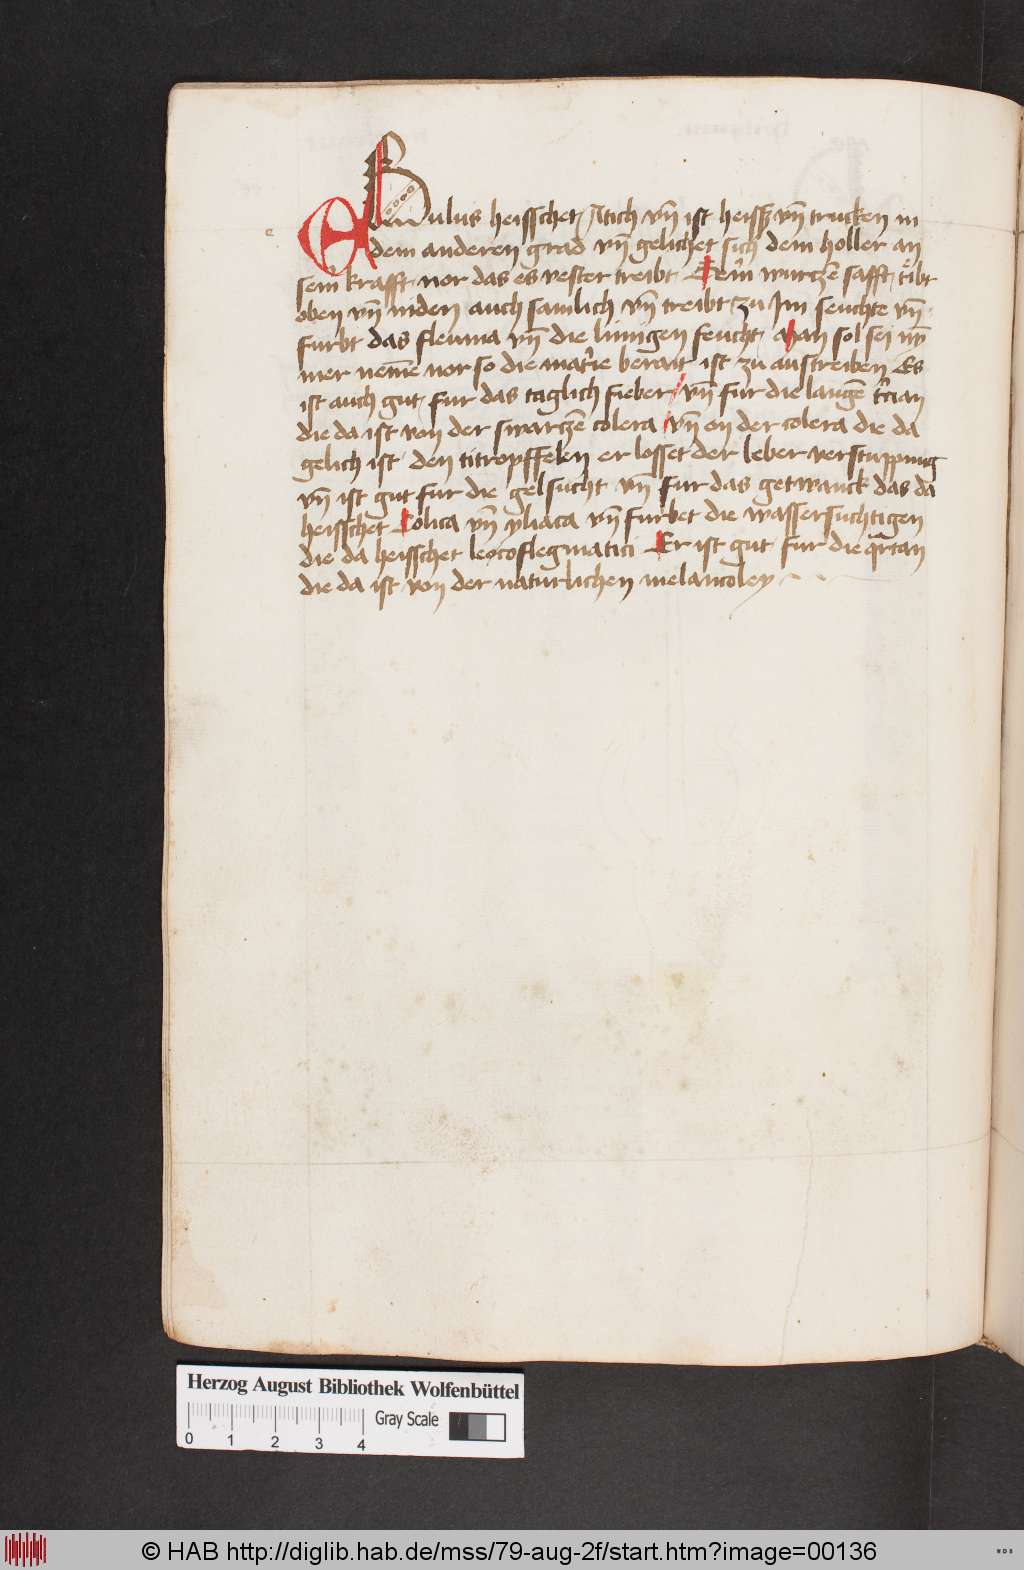 EBulus heisschet Atich vn̄ ist heiss vn̄ trucken in
dem anderen grad vn̄ gelichet sich dem holler an
sein krafft nor das es vester treibt Sein wurczē safft tribt
oben vn̄ niden auch samlich vn̄ treibt zu Im feuchte vn̄
furbt das fleuma vn̄ die lungen feucht Man sol sei nȳ
mer nemē nor so die materie berait ist zu austreiben Es
ist auch gut fur das taglich fieber vn̄ fur die langē tcian
die da ist von der swarczē colera vn̄ on der colera die da
gelich ist den titropffelen er losset der leber verstuppung
vn̄ ist gut fur die gelsucht vn̄ fur das getwanck das da
heisschet Colica vn̄ yliaca vn̄ furbet die wassersuchtigen
die da heisschet leocoflegmatici Er ist gut fur die qrtan
die da ist von der naturlichen melancoley
Herzog August Bibliothek Wolfenbüttel
0 1 2 3 4 Gray Scale
© HAB http://diglib.hab.de/mss/79-aug-2f/start.htm?image=00136